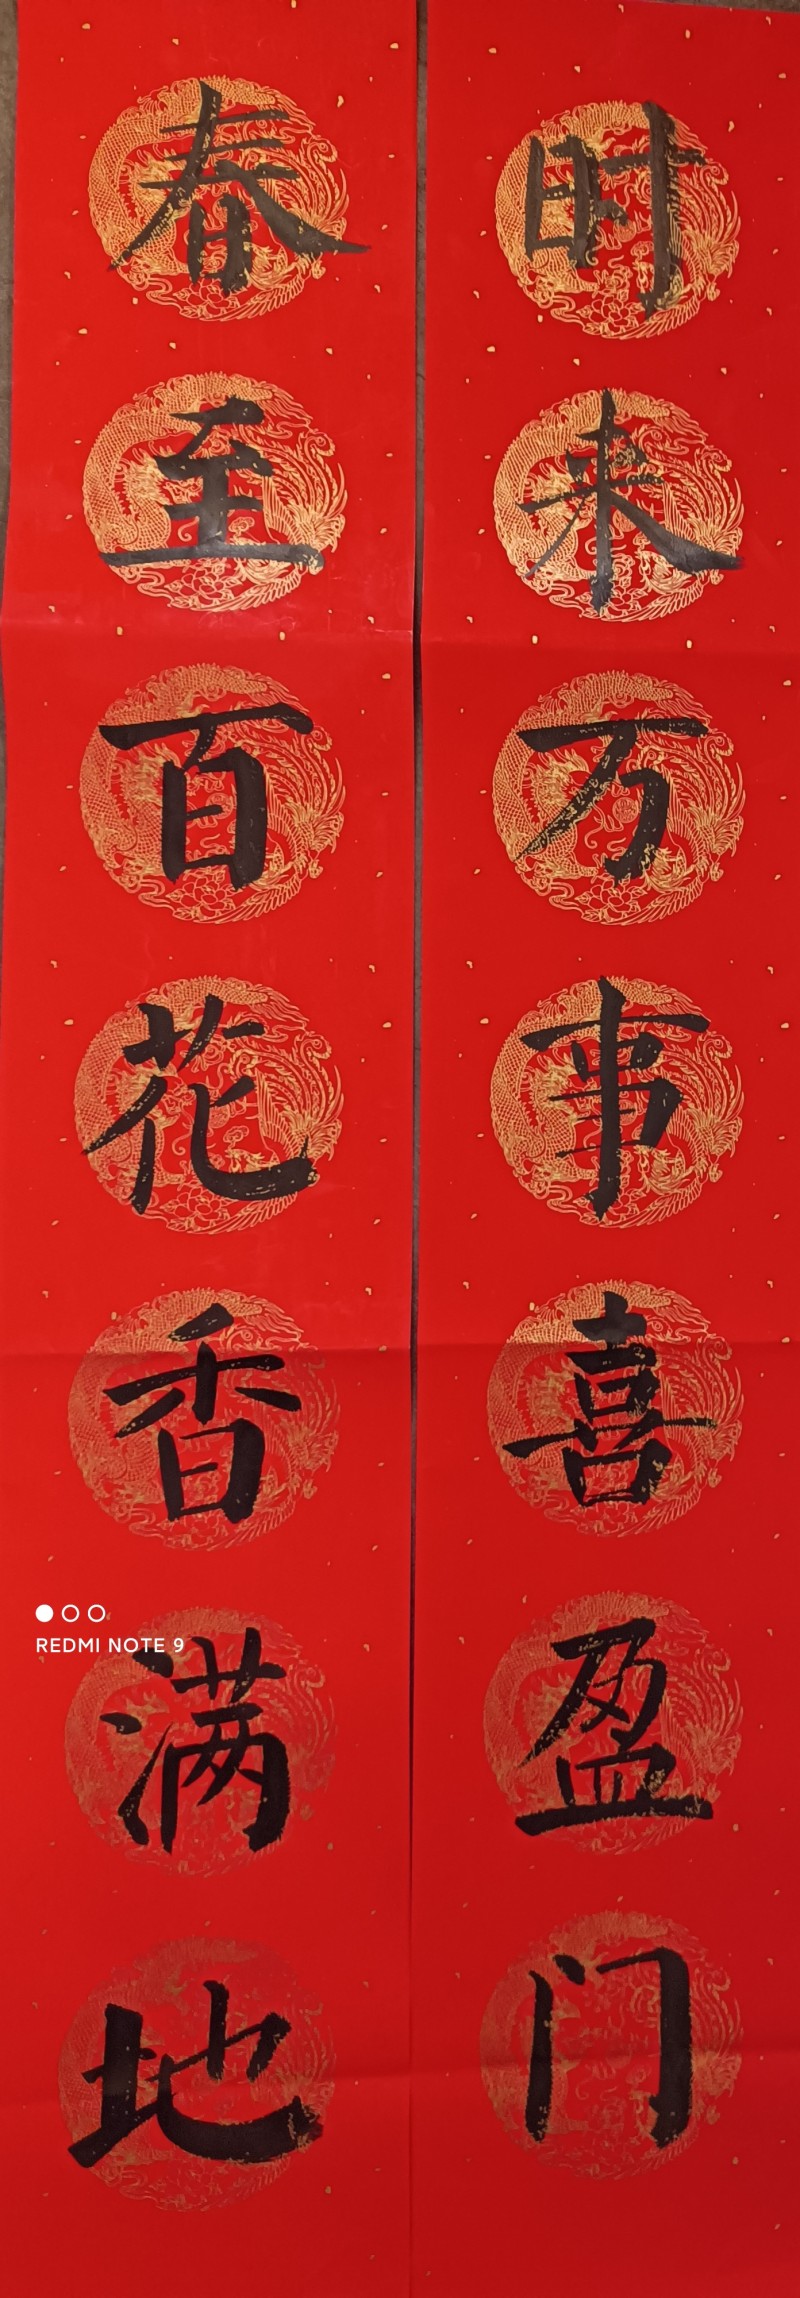 春至百花香满地
时来万事喜盈门
REDMI NOTE 9